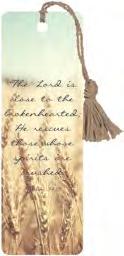 The Lord is
close to the
brokenhearted;
He rescues
those whose
spirits are
crushed.